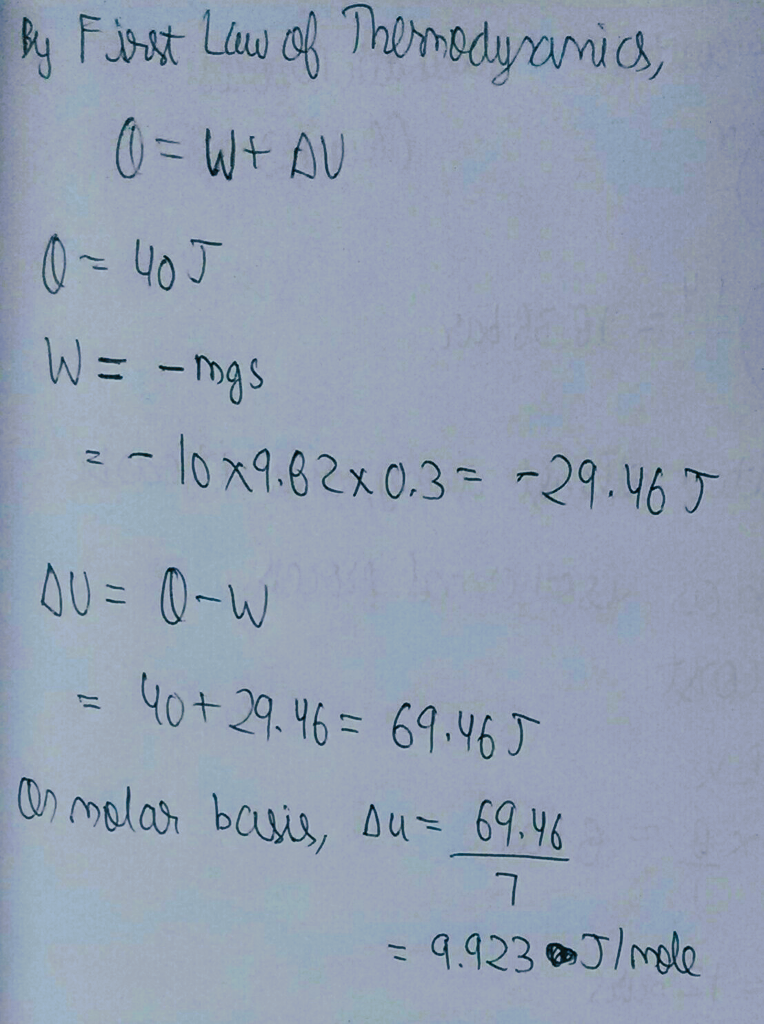 By First Law of Thermodynamics,
Q = W + ΔU
Q = 40 J
W = - mgs
= - 10 x 9.82 x 0.3 = -29.46 J
ΔU = Q - W
= 40 + 29.46 = 69.46 J
On molar basis, Δu = 69.46
7
= 9.923 J/mole